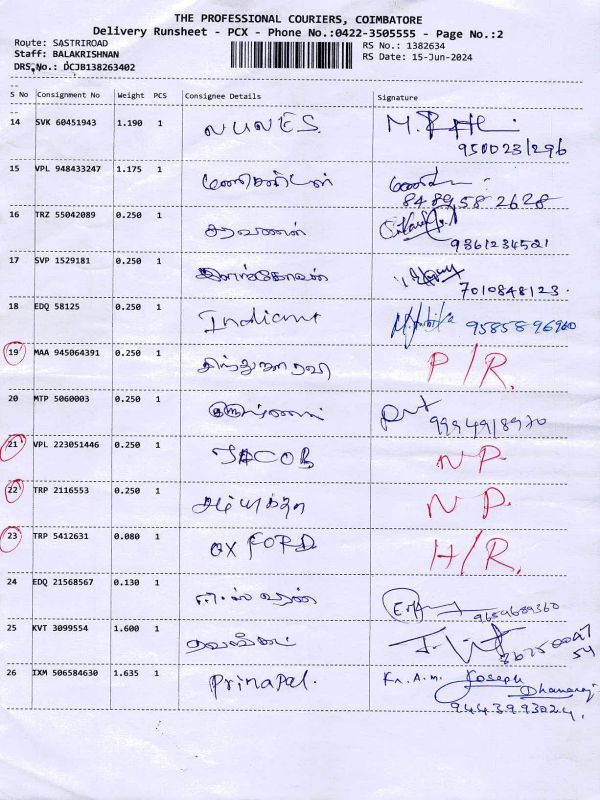 THE PROFESSIONAL COURIERS, COIMBATORE
Delivery Runsheet - PCX - Phone No.:0422-3505555 - Page No.:2
Route: SASTRIROAD
RS No.: 1382634
Staff: BALAKRISHNAN
RS Date: 15-Jun-2024
DRS No.: DCJB138263402
S No Consignment No Weight PCS Consignee Details Signature
14 SVK 60451943 1.190 1 NUNES.
9500231296
15 VPL 948433247 1.175 1 மணிகண்டன்
848958 2628
16 TRZ 55042089 0.250 1 சரவணன்
9361234521
17 SVP 1529181 0.250 1 இளங்கோவன்
7010848123.
18 EDQ 58125 0.250 1 9585896960
19 MAA 945064391 0.250 1 P/R.
20 MTP 5060003 0.250 1
9994918970
21 VPL 223051446 0.250 1 JACOB NP.
22 TRP 2116553 0.250 1 NP.
23 TRP 5412631 0.080 1 OXFORD H/R.
24 EDQ 21568567 0.130 1
9659689360
25 KVT 3099554 1.600 1
26 IXM 506584630 1.635 1 Prinapal. Joseph
Dhanaraj
9443993024.